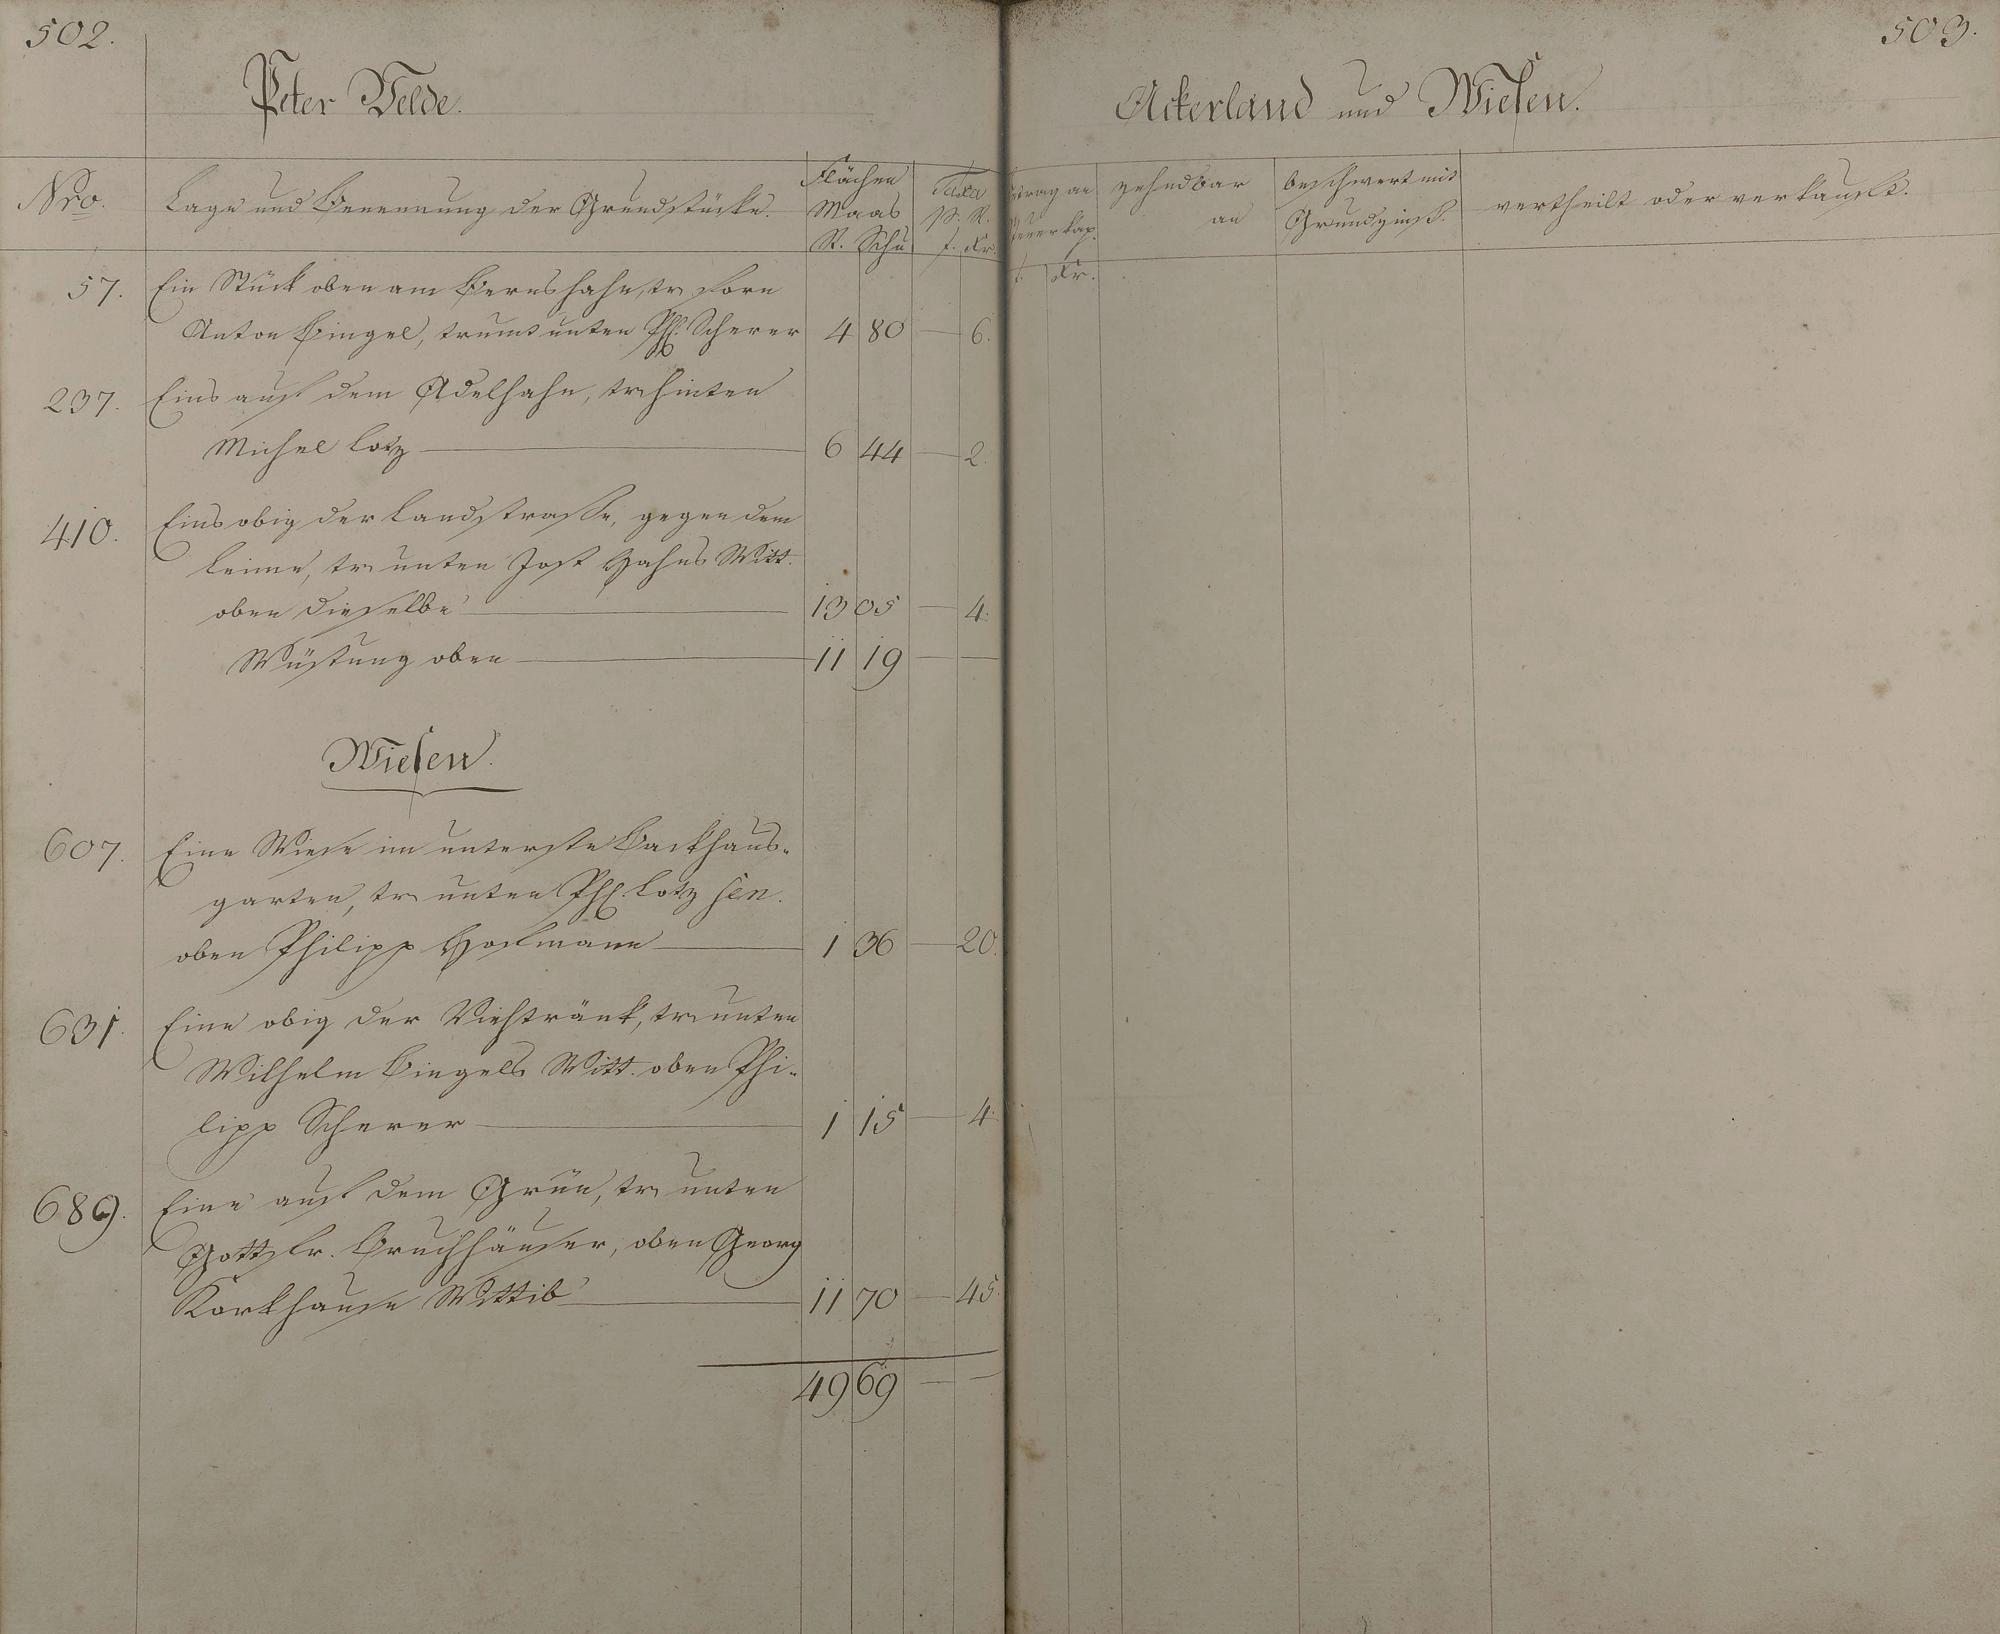 502.
503.
Peter Velde.
Ackerland und Wiesen.
Nro.
Lage und Benennung der Grundstücke.
Flächen
Maas
R. Schu
Taxa
p. R.
f. Kr.
trag an
euerkap.
f. Kr.
zehndbar
an
beschwert mit
Grundzinß.
vertheilt oder verkauft.
57. Ein Stück oben am Bernshahn, tr forn
Anton Bingel, trumt unten Phl. Scherer 4 80 — 6.
237. Eins auf dem Adelhahn, tr hinten
Michel Lotz — 6 44 — 2.
410. Eins obig der Landstrasse, gegen dem
Leime, tr unten Jost Hahns Witt.
oben dieselbe — 13 05 — 4.
Wüstung oben — 11 19 — —
Wiesen.
607. Eine Wiese im unterste Backhaus-
garten, tr unten Phl. Lotz sen.
oben Philipp Hofmann — 1 36 — 20.
631. Eine obig der Viehtränk, tr unten
Wilhelm Bingels Witt. oben Phi-
lipp Scherer — 1 15 — 4.
689. Eine auf dem Grün, tr unten
Gottfr. Bruchhäuser, oben Georg
Korkhause Wittib — 11 70 — 45.
49 69 — —